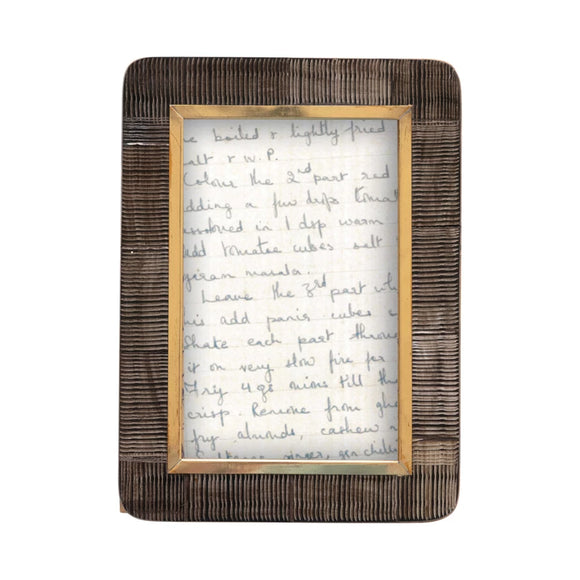 e boiled & lightly fried
alt & W.P.
Colour the 2nd part red
dding a few drops tomat
ssolved in 1 dsp warm
add tomatoe cubes salt
garam masala.
Leave the 3rd part wh
his add panir cubes
Shake each part throu
it on very slow fire for
Fry 4 ozs onions till th
crisp. Remove from ghe
fry almonds, cashew n
ginger, gr. chili